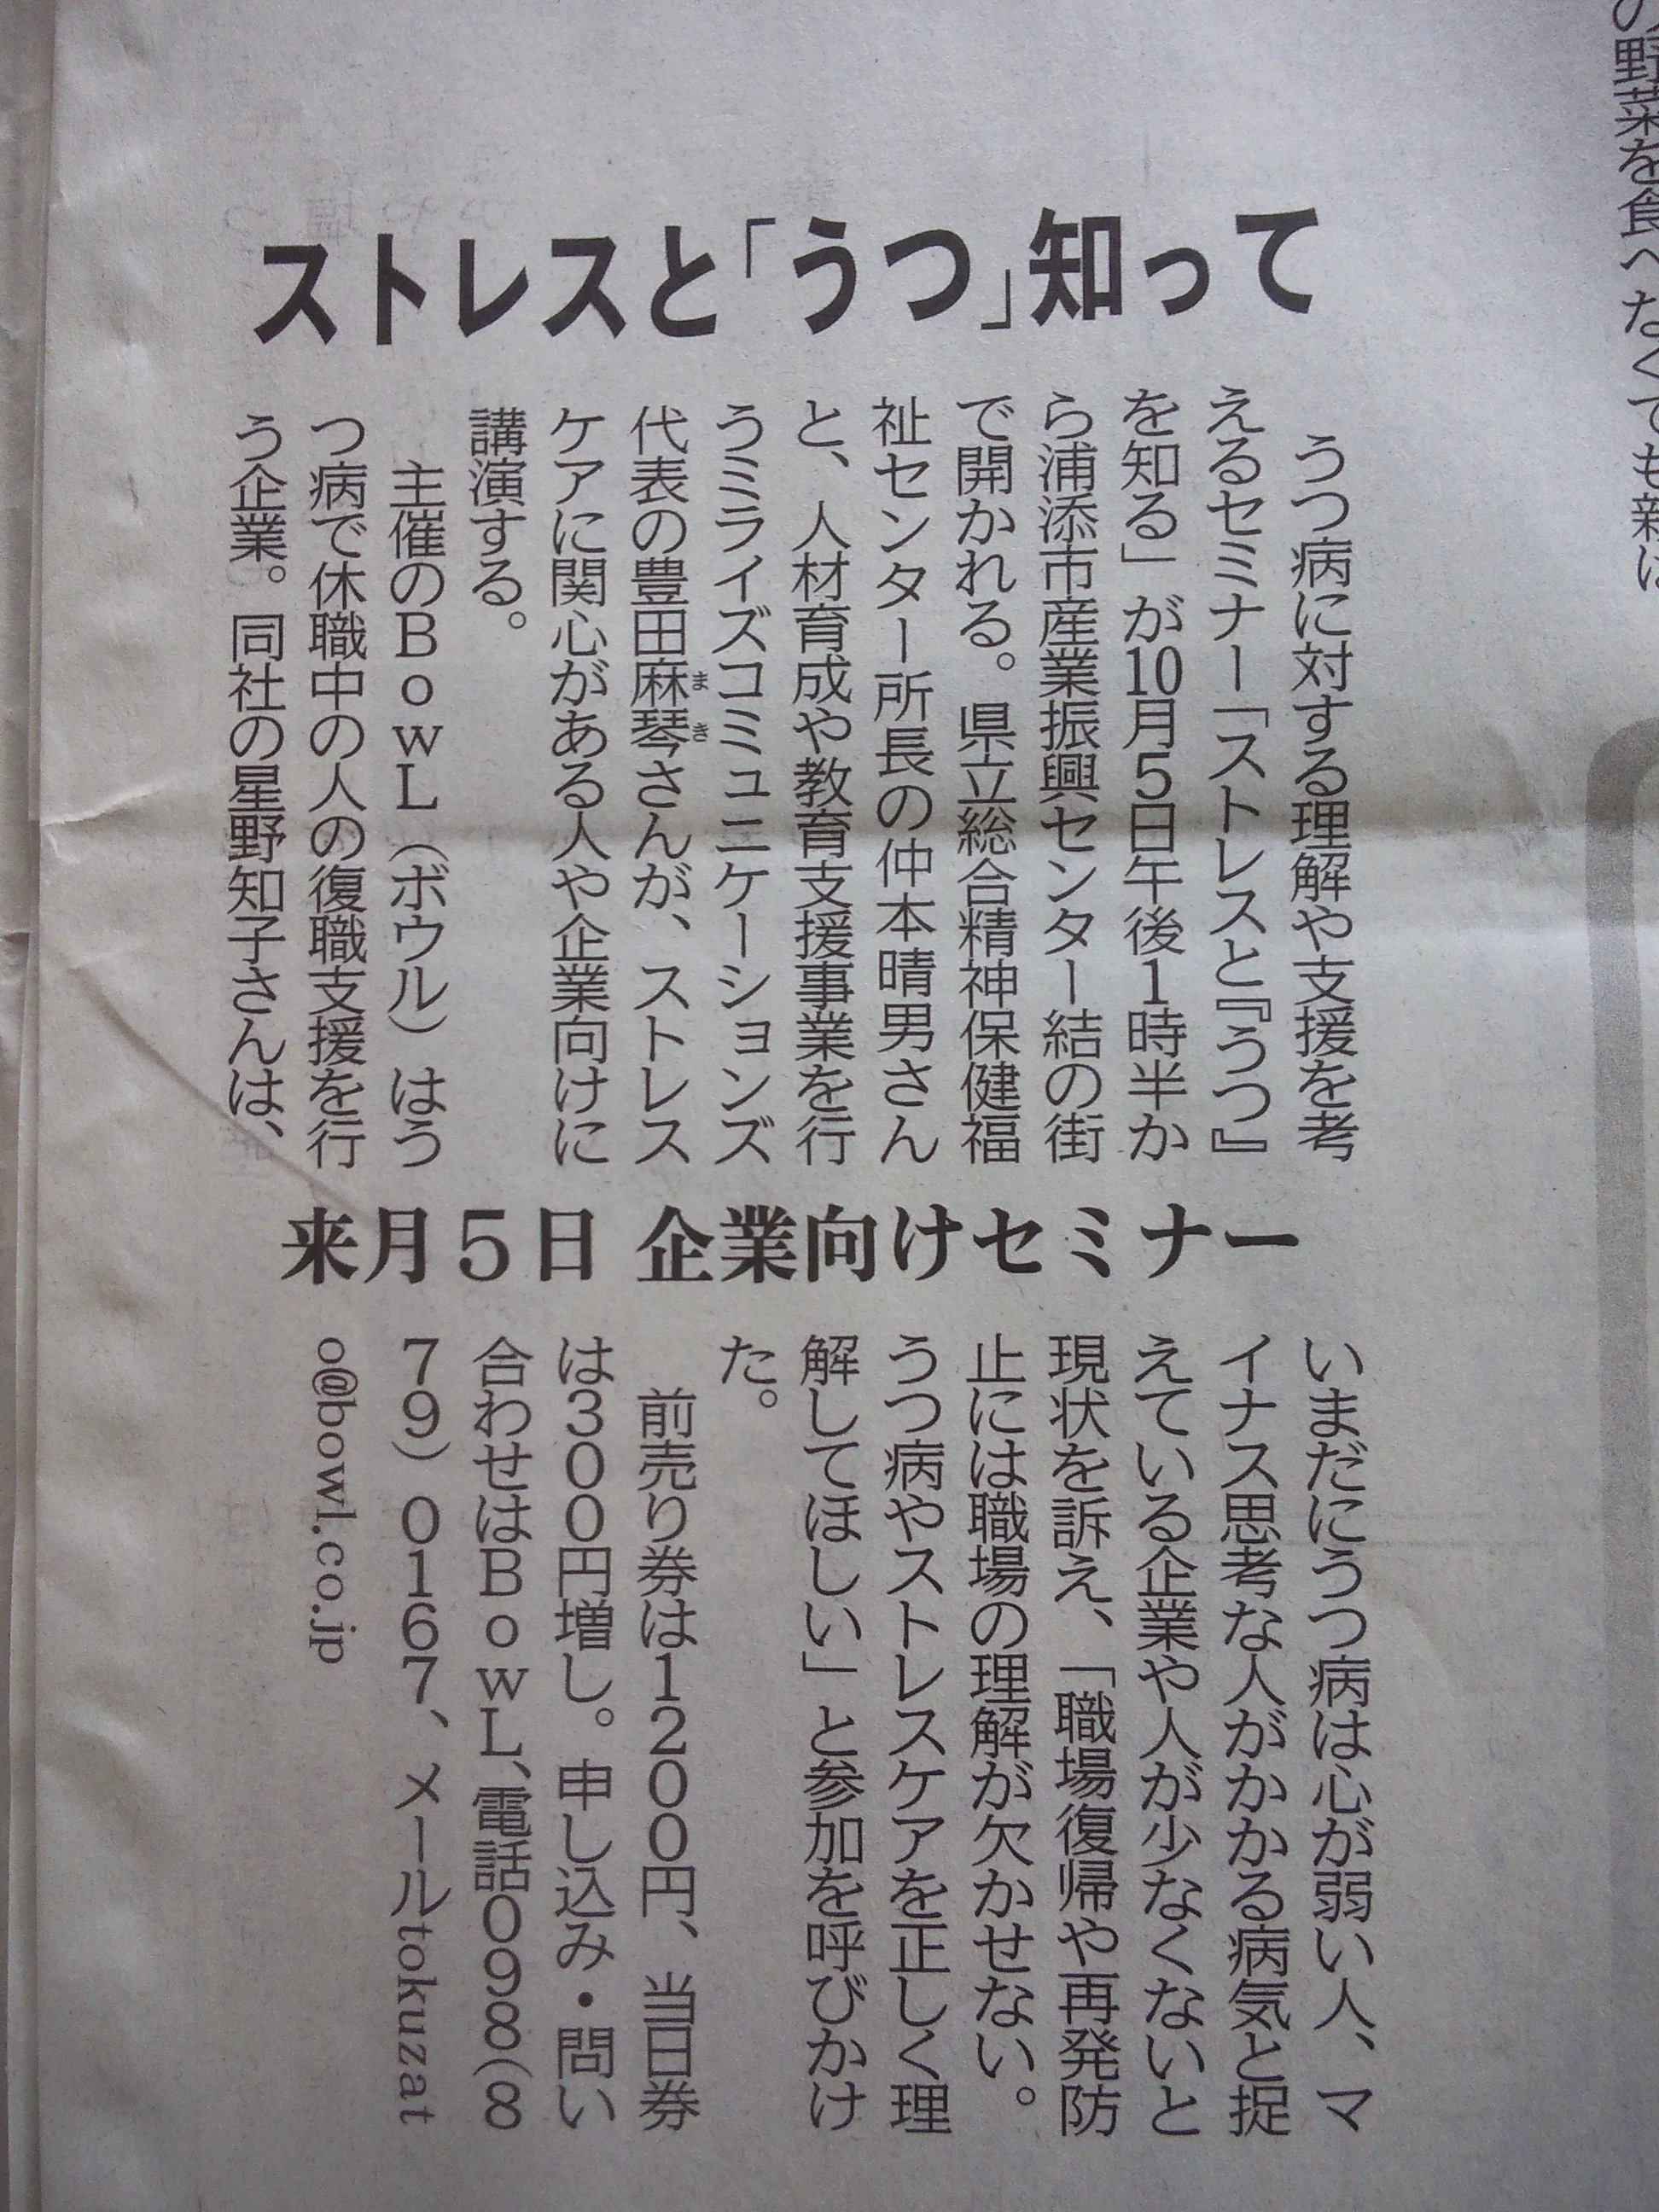 の野菜を食べなくても新
ストレスと「うつ」知って
うつ病に対する理解や支援を考
えるセミナー「ストレスと『うつ』
を知る」が10月5日午後1時半か
ら浦添市産業振興センター結の街
で開かれる。県立総合精神保健福
祉センター所長の仲本晴男さん
と、人材育成や教育支援事業を行
うミライズコミュニケーションズ
代表の豊田麻琴さんが、ストレス
まき
ケアに関心がある人や企業向けに
講演する。
主催のBowL（ボウル）はう
つ病で休職中の人の復職支援を行
う企業。同社の星野知子さんは、
来月5日 企業向けセミナー
いまだにうつ病は心が弱い人、マ
イナス思考な人がかかる病気と捉
えている企業や人が少なくないと
現状を訴え、「職場復帰や再発防
止には職場の理解が欠かせない。
うつ病やストレスケアを正しく理
解してほしい」と参加を呼びかけ
た。
前売り券は1200円、当日券
は300円増し。申し込み・問い
合わせはBowL、電話098(8
79）0167、メールtokuzat
o@bowl.co.jp